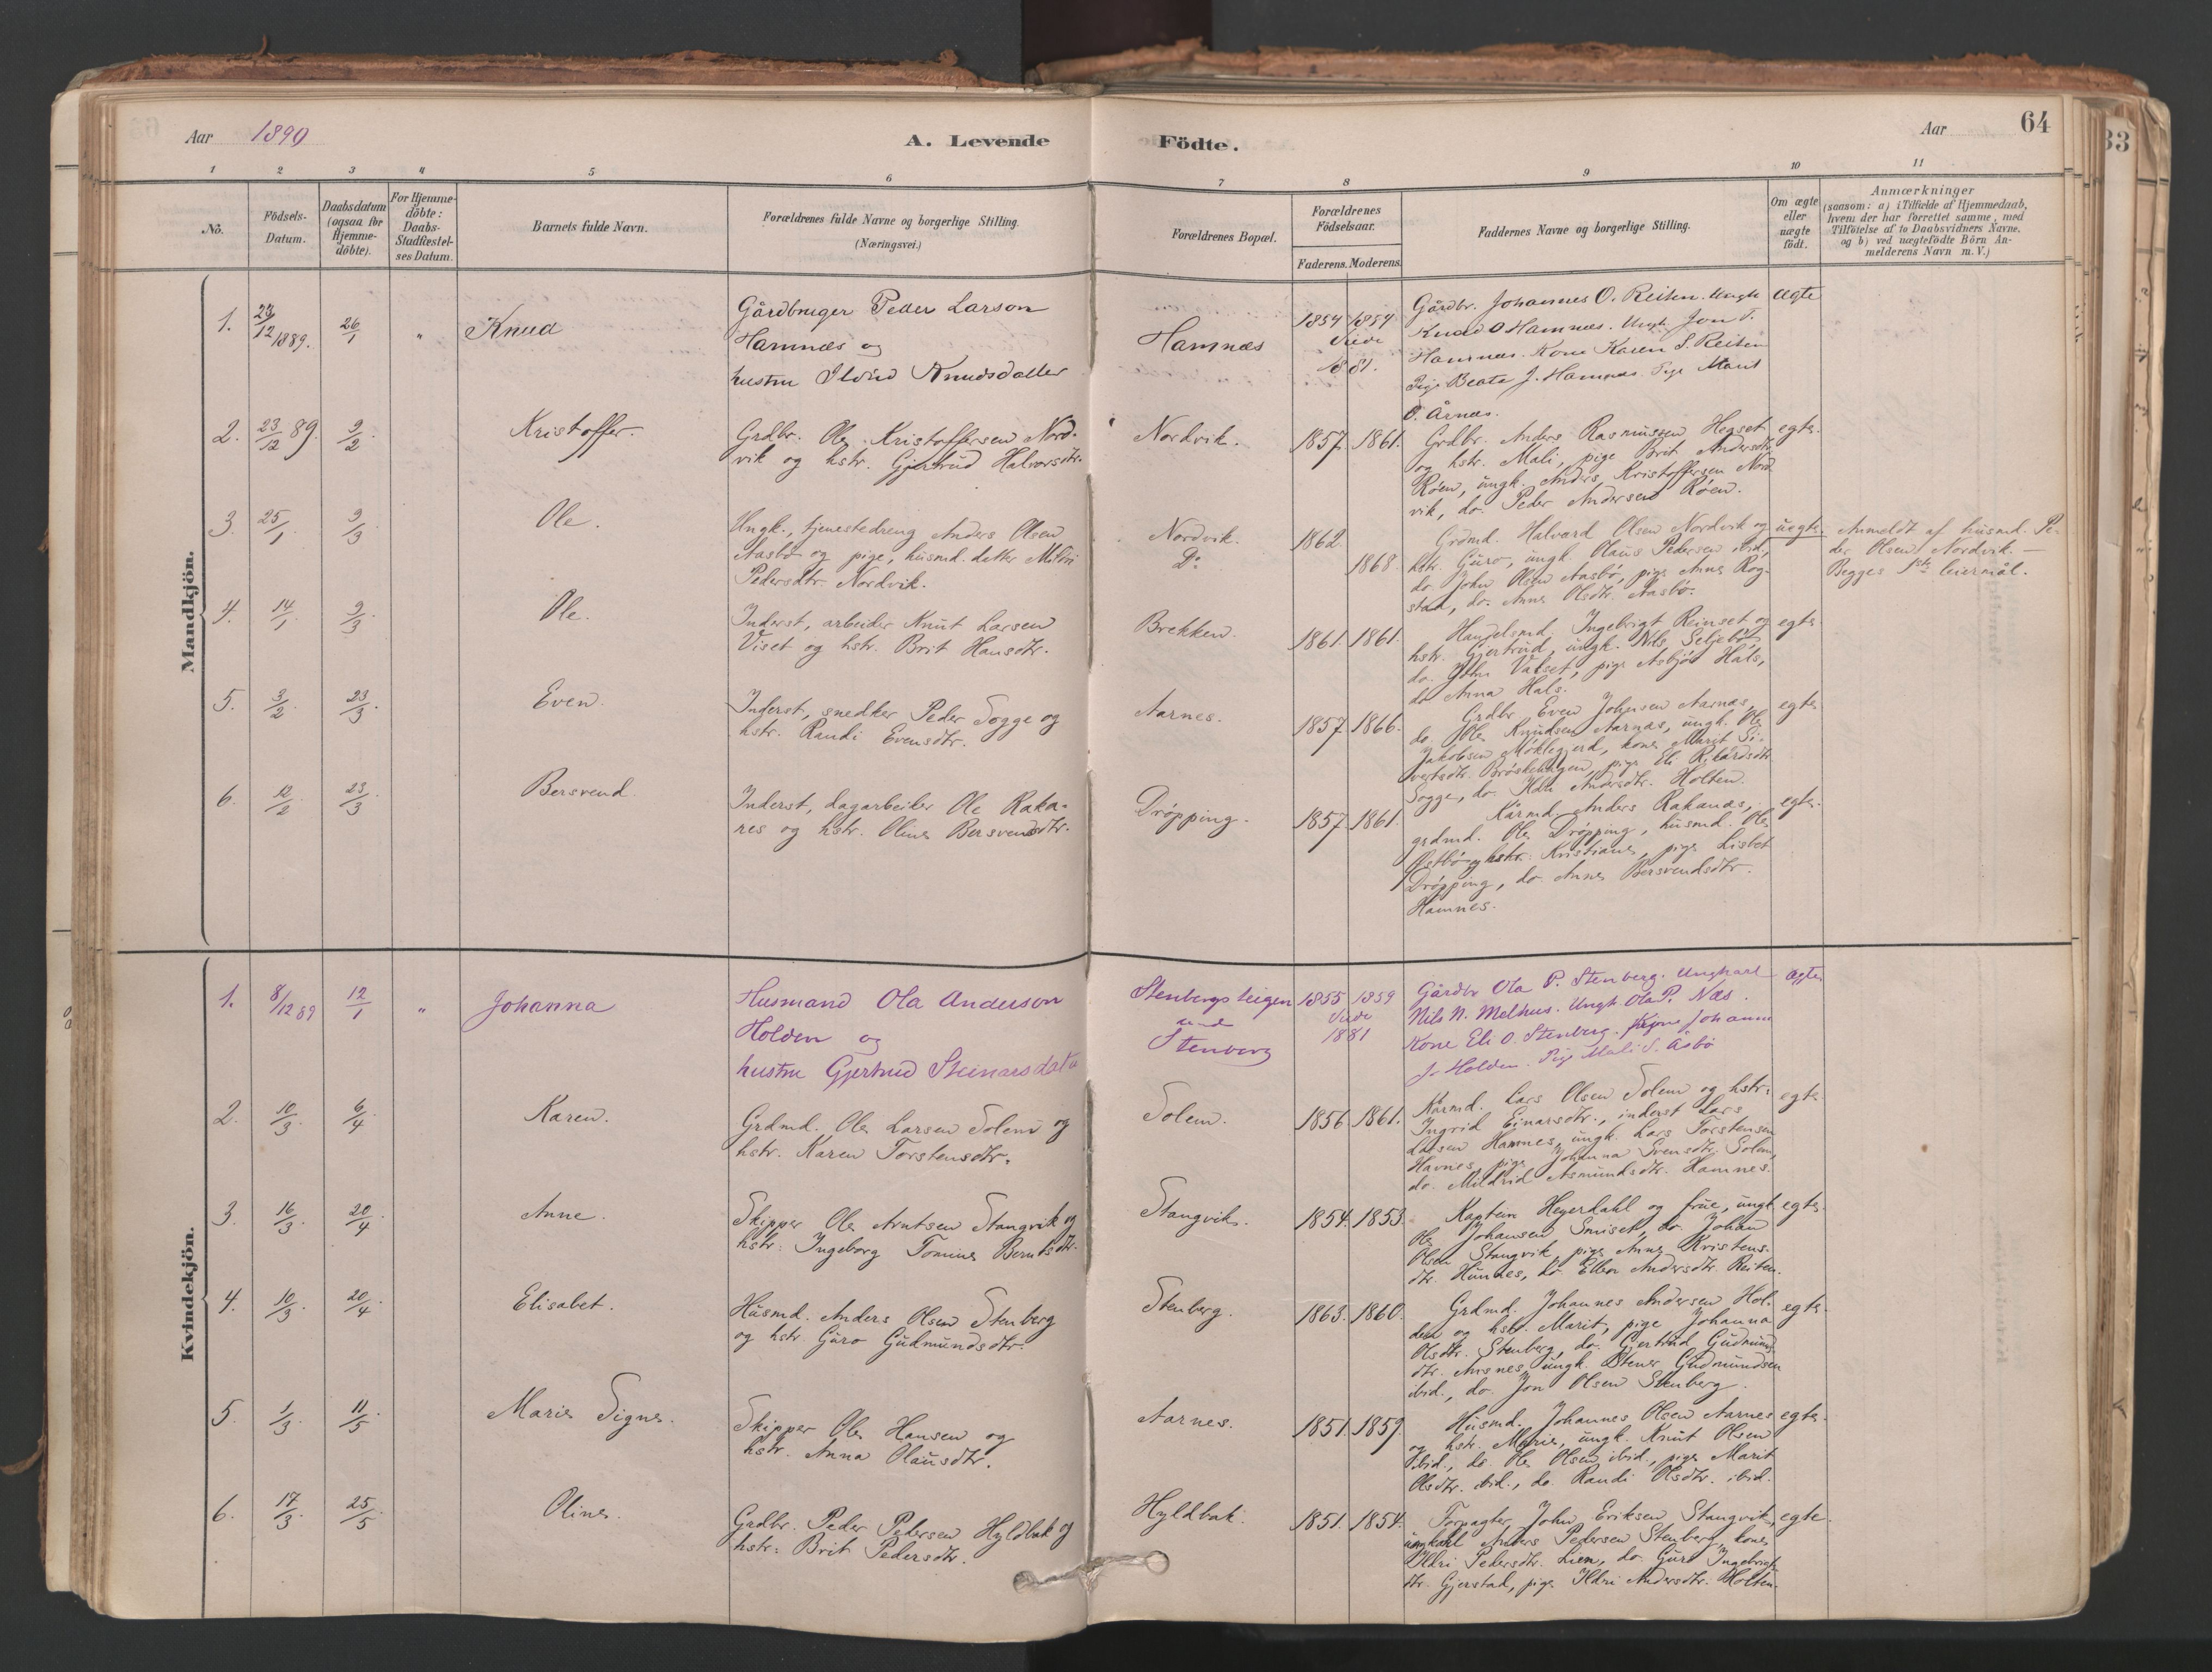 Aar 1890
A. Levende Födte.
Aar
64
1 2 3 4 5 6 7 8 9 10 11
No.
Födsels-Datum.
Daabsdatum (ogsaa for Hjemmedöbte).
For Hjemmedöbte: Daabs-Stadfæstelses Datum.
Barnets fulde Navn.
Forældrenes fulde Navne og borgerlige Stilling. (Næringsvei.)
Forældrenes Bopæl.
Forældrenes Födselsaar.
Faderens. Moderens.
Faddernes Navne og borgerlige Stilling.
Om ægte eller uægte födt.
Anmærkninger
(saasom: a) i Tilfælde af Hjemmedaab, hvem der har forrettet samme, med Tilföielse af to Daabsvidners Navne, og b) ved uægtefödte Börn Anmelderens Navn m. V.)
Mandkjön.
1. 23/12 1889. 26/1 " Knud
Gårdbruger Peder Larson
Hamnæs og
hustru Ildrid Knudsdatter
Hamnæs
1854 1854
Viede
1881.
Gårdbr. Johannes O. Reiten. Ungk
Knud O Hamnæs. Ungk. Jon T.
Hamnæs. Kone Karen S. Reiten
Pige Beate J. Hamnæs. Pige Marit
O. Årnæs.
ægte
2. 23/12 89. 9/2. Kristoffer.
Grdbr. Ole Kristoffersen Nord-
vik og hstr. Gjertrud Halvorsdtr.
Nordvik.
1857. 1861.
Grdbr. Anders Rasmussen Hegset
og hstr. Mali, pige Brit Andersdtr.
Röen, ungk. Anders Kristoffersen Nord
vik, do. Peder Andersen Röen.
egte.
3. 25/1 9/3 Ole.
Ungk., tjenestedreng Anders Olsen
Aasbö og pige, husmd. datter
Pedersdtr. Nordvik.
Nordvik.
Do.
1862.
1868.
Grdmd. Halvard Olsen Nordvik og
hstr. Guro, ungk Olaus Pedersen ibid.,
do John Olsen Aasbö, pige Anne Rog-
stad, do. Anne Olsdtr. Aasbö.
uegte.
Anmeldt af husmd. Pe-
der Olsen Nordvik. —
Begges 1ste leiermål.
4. 14/1 9/3. Ole.
Inderst, arbeider Knut Larsen
Viset og hstr. Brit Hansdtr.
Brekken.
1861. 1861.
Handelsmd. Ingebrigt Reinset og
hstr. Gjertrud, ungk. Nils Seljebö
do. John Vakset, pige Asbjör Hals,
do Anna Hals.
egte
5. 3/2 23/3. Even.
Inderst, snedker Peder Sogge og
hstr. Randi Evensdtr.
Aarnes.
1857. 1866.
Grdbr. Even Johnsen Aarnes,
do Ole Knudsen Aarnes, ungk. Ole
Jakobsen Möklegjerd, kone Marit Si-
vertsdtr. pige Eli Rikardsdtr
Sogge, do. Ildri Andersdtr. Holten.
egte
6. 12/2 23/3. Bersvend.
Inderst, dagarbeider Ole Raka-
nes og hstr. Oline Bersvendsdtr.
Dröpping.
1857. 1861.
Kårmd. Anders Rakanæs,
grdmd. Ole Dröpping, husmd. Ole
og hstr. Kristiane, pige Lisbet
Dröpping, do Anne Bersvendsdtr.
Hamnes.
egte.
Kvindekjön.
1. 8/12 89 12/1 " Johanna
Husmand Ola Anderson
Holden og
hustru Gjertrud Steinarsdatter
Stenbergsteigen
Stenberg
1855 1859
Viede
1881
Gårdbr Ola P. Stenberg. Ungkarl
Nils N. Melhus. Ungk Ola P. Næs.
Kone Eli O. Stenberg. Pige Johanna
J. Holden. Pige Mali S. Åsbö
ægte
2. 10/3. 6/4. Karen.
Grdmd. Ole Larsen Solem og
hstr. Karen Torstensdtr.
Solem.
1856. 1861.
Kårmd. Lars Olsen Solem og hstr.
Ingrid Einarsdtr., inderst Lars
Larsen Hamnes, ungk. Lars Torstensen
Havnes, pige Johanna Svensdtr. Solem,
do. Mildrid Asmundsdtr. Hamnes.
egte
3. 16/3. 20/4. Anne.
Skipper Ole Arntsen Stangvik og
hstr. Ingeborg Tomine Berntsdtr.
Stangvik.
1854. 1853.
Kaptein Heyerdahl og frue, ungk
Ole Johansen Smiset, do. Johan
Olsen Stangvik, pige Anne Kristens-
dtr. Hunnes, do. Ellen Andersdtr. Reiten.
egte.
4. 10/3. 20/4. Elisabet.
Husmd. Anders Olsen Stenberg
og hstr. Guro Gudmundsdtr.
Stenberg.
1863. 1860.
Grdmd. Johannes Andersen Hol-
den og hstr. Marit, pige Johanna
Olsdtr. Stenberg, do. Gjertrud Gudmunds-
dtr. Aasnes, ungk. Stener Gudmundsen
ibid., do. Jon Olsen Stenberg.
egte.
5. 1/3. 11/5. Marie Signe.
Skipper Ole Hansen og
hstr. Anna Olausdtr.
Aarnes.
1851. 1859.
Husmd. Johannes Olsen Aarnes
og hstr. Marie, ungk. Knut Olsen
ibid., do Ole Olsen ibid., pige Marit
Olsdtr. ibid., do. Randi Olsdtr. ibid.
egte.
6. 17/3. 25/5. Oline.
Grdbr. Peder Pedersen Hyldbak og
hstr. Brit Pedersdtr.
Hyldbak.
1851. 1854.
Forpagter John Eriksen Stangvik,
ungkarl Anders Pedersen Stenberg, kone
Ildri Pedersdtr. Lien, do. Guro Ingebrigts-
dtr. Gjerstad, pige Ildri Andersdtr. Holten.
egte.